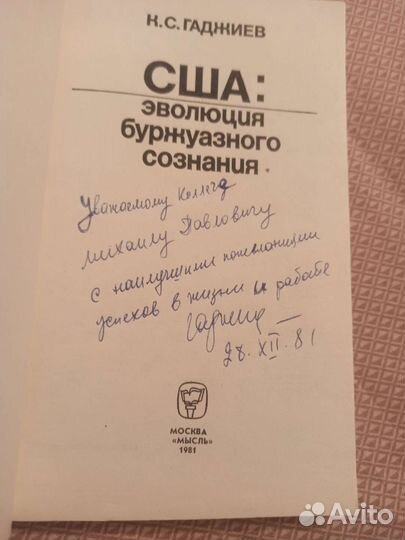 К.С.ГАДЖИЕВ
США:
эволюция
буржуазного
сознания
Уважаемому Коллеге
Михаилу Павловичу
с наилучшими пожеланиями
успехов в жизни и работе
Гаджиев
28.XII.81
МОСКВА
«МЫСЛЬ»
1981
Avito